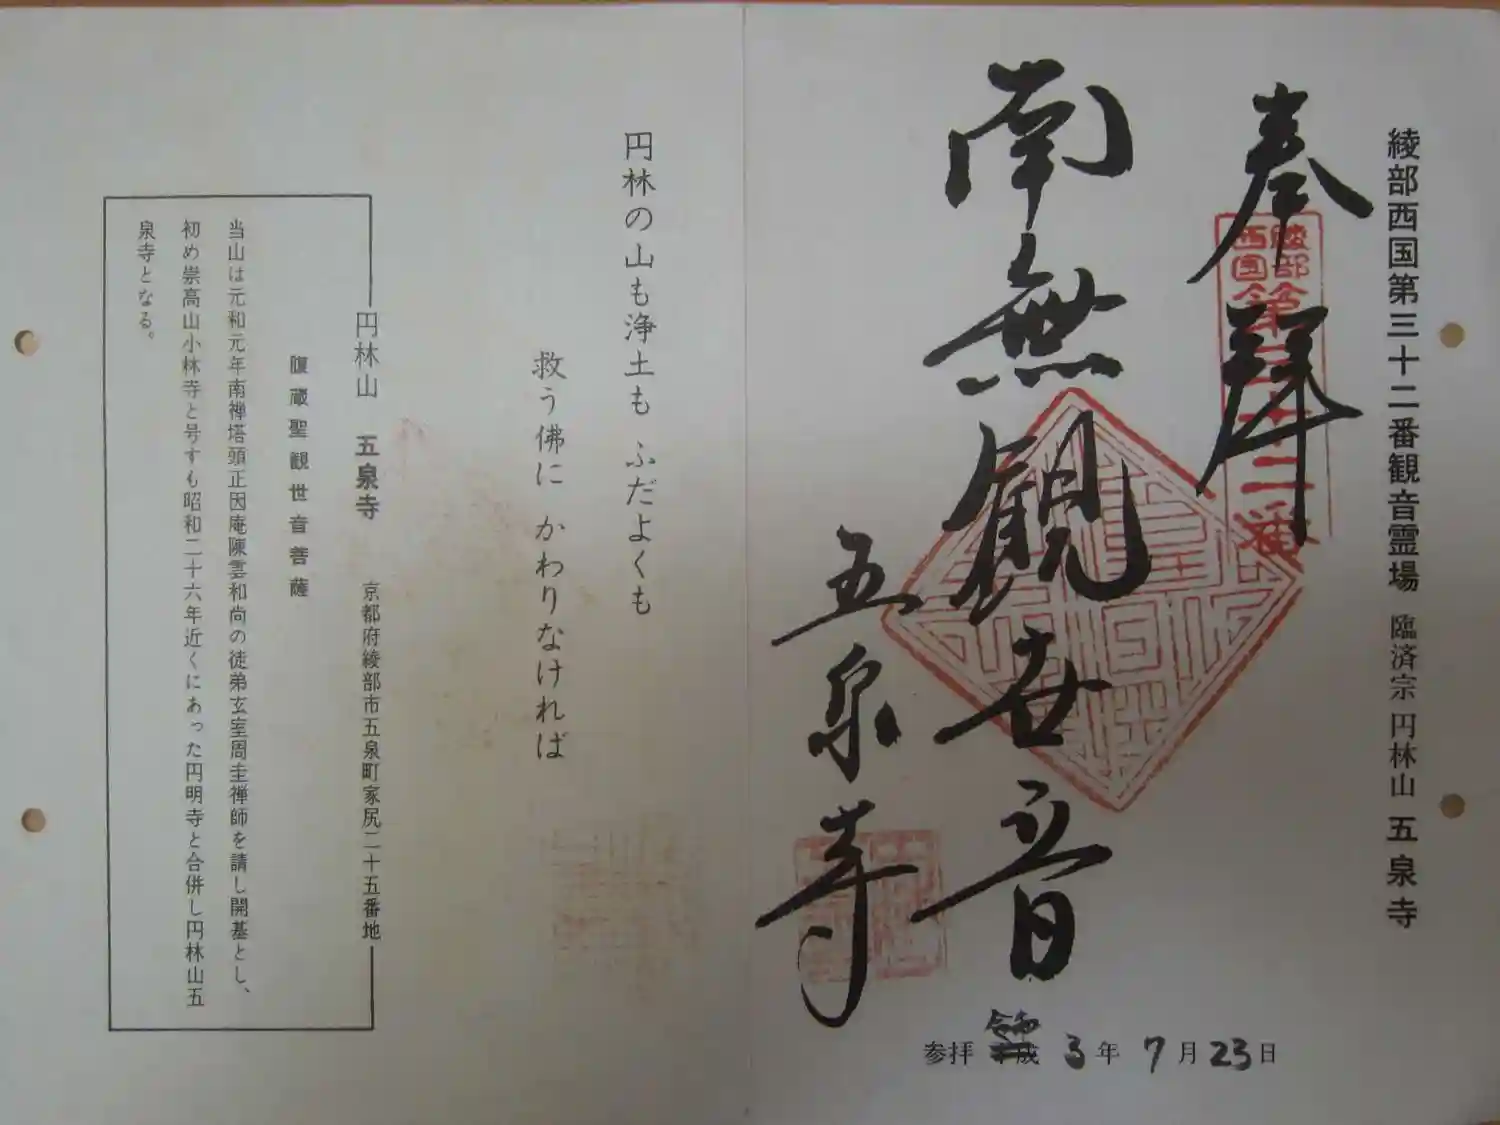 綾部西国第三十二番観音霊場 臨済宗 円林山 五泉寺
奉拝
綾部西国第三十二番
南無観世音
五泉寺
参拝 平成 令和 3年 7月 23日
円林の山も浄土も ふだよくも
救う佛に かわりなければ
円林山 五泉寺 京都府綾部市五泉町家尻二十五番地
腹蔵聖観世音菩薩
当山は元和元年南禅塔頭正因庵陳雲和尚の徒弟玄室周圭禅師を請し開基とし、
初め崇高山小林寺と号すも昭和二十六年近くにあった円明寺と合併し円林山五
泉寺となる。